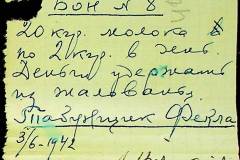 БОН N 8
20 кур. молока
по 2 кур. в день.
Деньги удержать
из жалованья.
Табунщик Фекла
3/6-1942